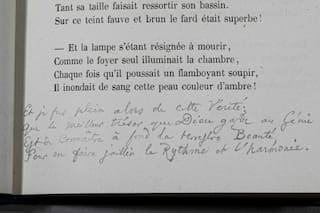 Tant sa taille faisait ressortir son bassin.
Sur ce teint fauve et brun le fard était superbe!
— Et la lampe s'étant résignée à mourir,
Comme le foyer seul illuminait la chambre,
Chaque fois qu'il poussait un flamboyant soupir,
Il inondait de sang cette peau couleur d'ambre!
Et je fus plein alors de cette Vérité:
Que le meilleur trésor que Dieu garde au Génie
Est de connaître à fond la terrestre Beauté
Pour en faire jaillir le Rythme et l'harmonie.